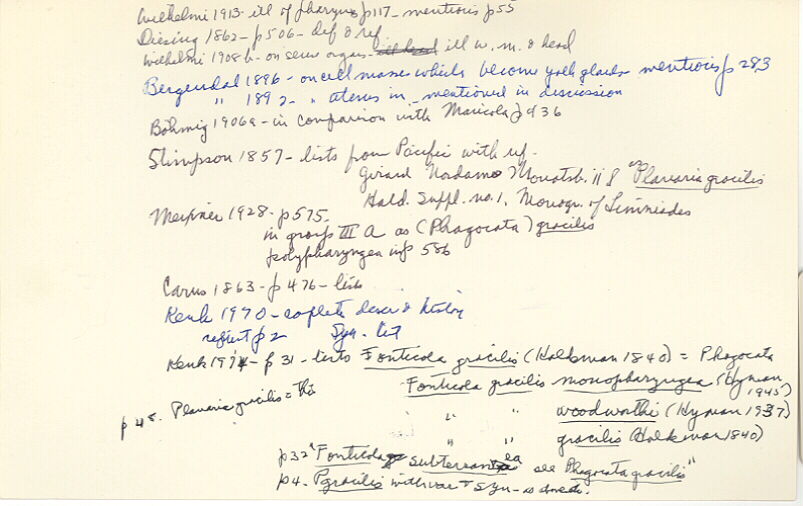 Wilhelmi 1913 - ill of pharynx p117 - mentions p55
Diesing 1862 - p506 - def & ref
Wilhelmi 1908b - on sense organs - ill w. m. & head
Bergendal 1896 - on cell masses which become yolk glands mentions p 283
" 1892 - " uterus in - mentioned in discussion
Böhmig 1906a - in comparison with Maricola p 436
Stimpson 1857 - lists from Pacific with ref -
Girard Nordam Monatsb. II as Planaria gracilis
Hald. Suppl. no. 1. Monogr. of Limniades
Meixner 1928 - p575.
in group III A as (Phagocata) gracilis
polypharyngea in p 586
Carus 1863 - p 476 - lists
Kenk 1970 - coplete descr & history
reprint p 2 Syn. list
Kenk 1974 - p 31 - lists Fonticola gracilis (Haldeman 1840) = Phagocata
Fonticola gracilis monopharyngea (Hyman 1945)
" " woodworthi (Hyman 1937)
p 45. Planaria gracilis = this
" " gracilis (Haldeman 1840)
p32 "Fonticola subterranea see Phagocata gracilis"
p4. P gracilis with var & syn - as above.